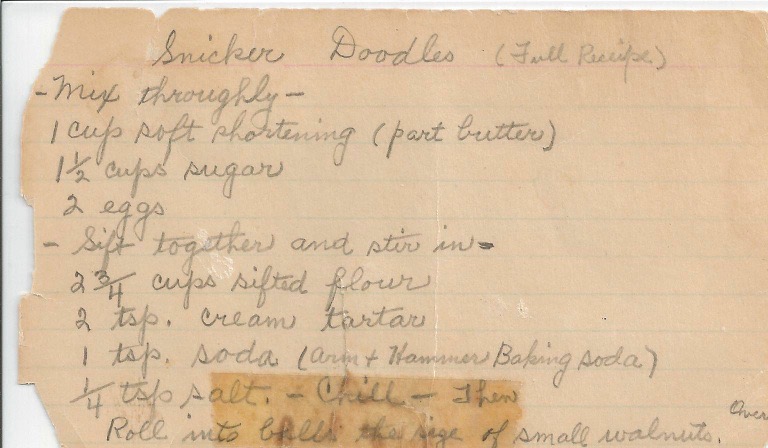 Snicker Doodles (Full Recipe)
- Mix throughly -
1 cup soft shortening (part butter)
1 1/2 cups sugar
2 eggs
- Sift together and stir in -
2 3/4 cups sifted flour
2 tsp. cream tartar
1 tsp. soda (Arm + Hammer Baking soda)
1/4 tsp salt. - Chill - Then
Roll into balls the size of small walnuts. Over